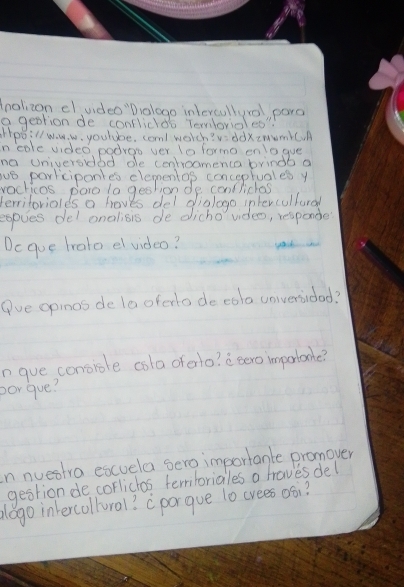 Analizan el video "Dialogo intercultural, para
a gestion de conflictos Territoriales.
https://w.w.w.youtube.com/watch?v=
n este video podran ver la forma en la que
na universidad de centroamerica brinda a
us participantes elementos conceptuales y
racticos para la gestion de conflictos
territoriales a traves del dialogo intercultural
espues del analisis de dicho video, responde:
De que trata el video?
Que opinas de la oferta de esta universidad?
n que consiste esta oferta? ¿ sera importante?
por que?
n nuestra escuela sera importante promover
gestion de conflictos territoriales a traves del
alogo intercultural? ¿ por que lo crees asi?